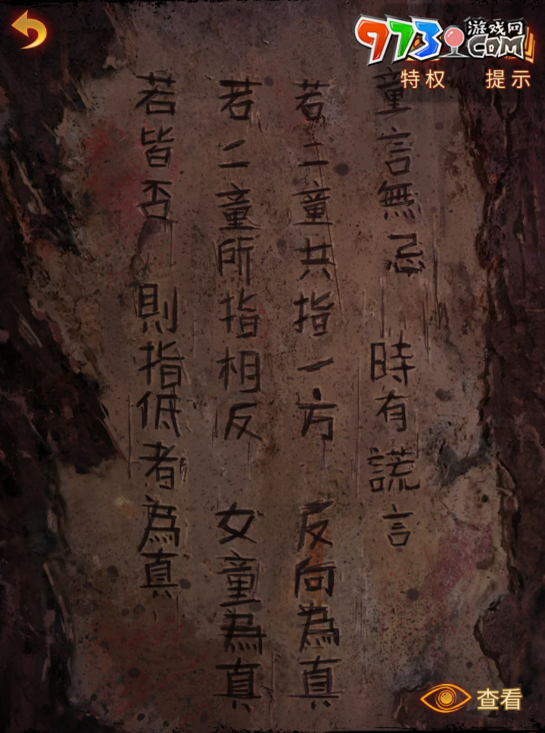 973游戏网
.COM
特权 提示
童言無忌 時有謊言
若二童共指一方 反向為真
若二童所指相反 女童為真
若皆否 則指低者為真
查看